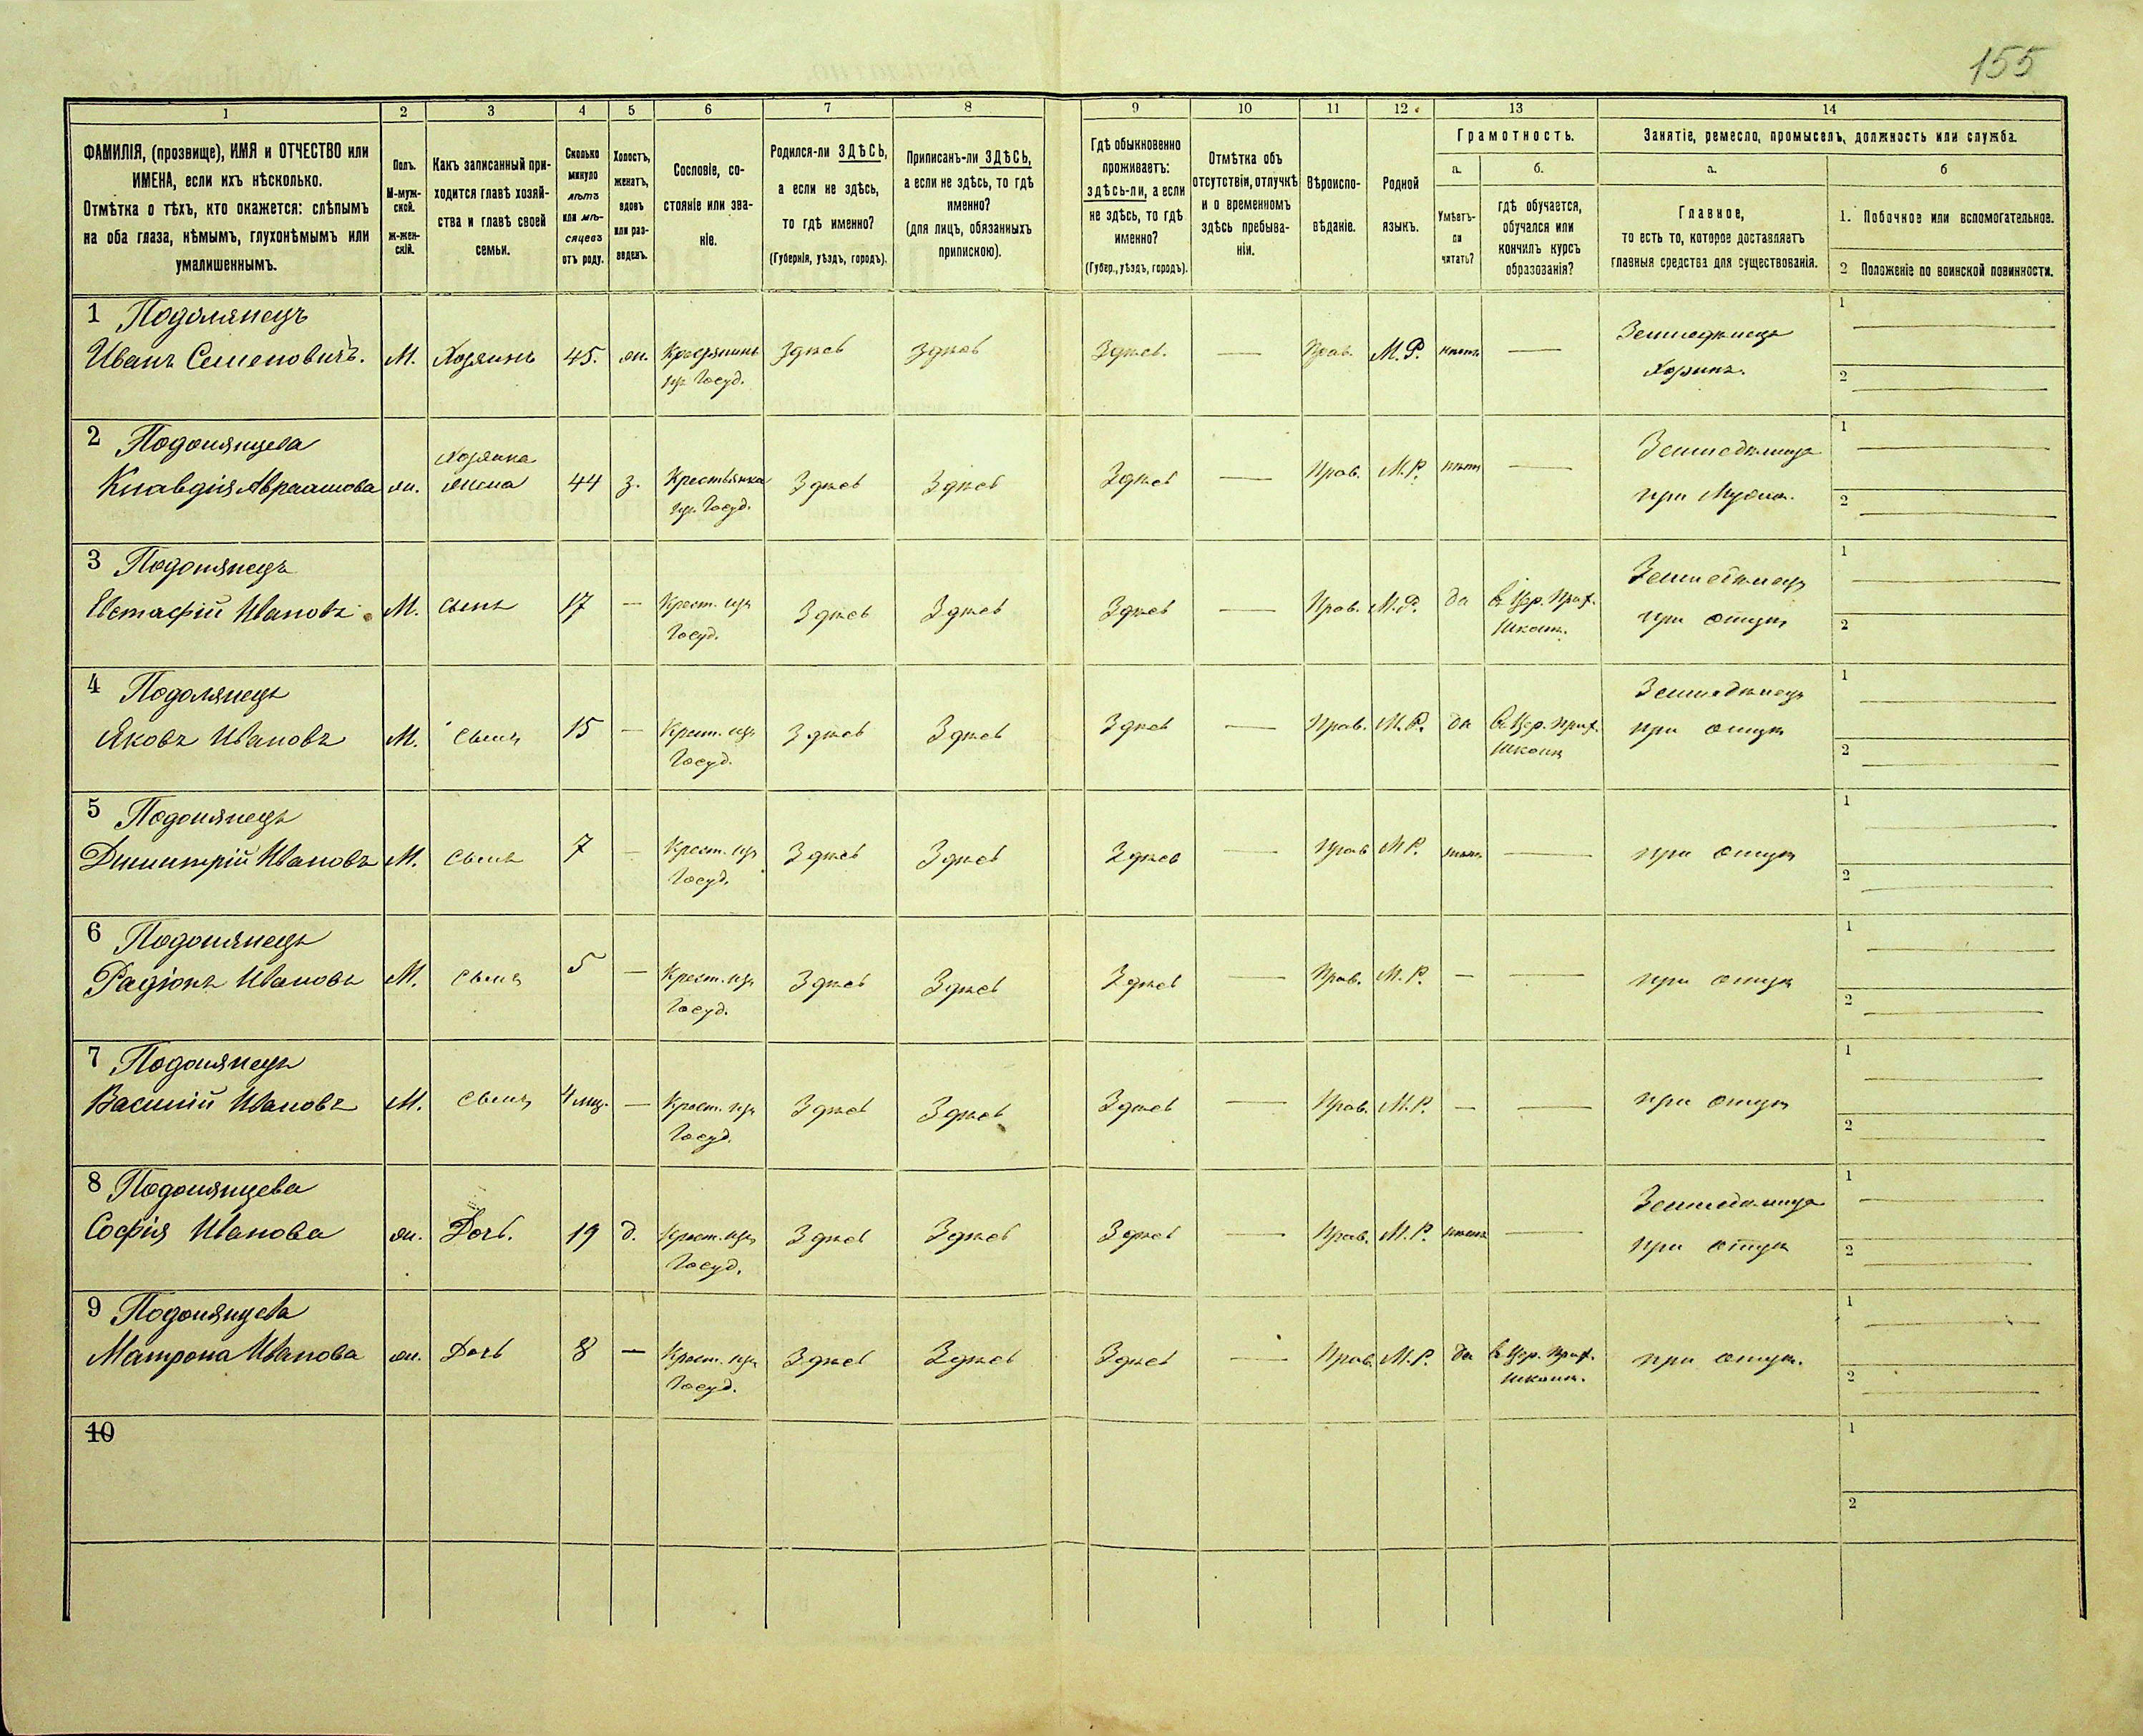 155
1 2 3 4 5 6 7 8 9 10 11 12 13 14
ФАМИЛІЯ, (прозвище), ИМЯ и ОТЧЕСТВО или
ИМЕНА, если ихъ нѣсколько.
Отмѣтка о тѣхъ, кто окажется: слѣпымъ
на оба глаза, нѣмымъ, глухонѣмымъ или
умалишеннымъ.
Полъ.
М-муж-
ской.
Ж-жен-
скій.
Какъ записанный при-
ходится главѣ хозяй-
ства и главѣ своей
семьи.
Сколько
минуло
лѣтъ
или мѣ-
сяцевъ
отъ роду.
Холостъ,
женатъ,
вдовъ
или раз-
веденъ.
Сословіе, со-
стояніе или зва-
ніе.
Родился-ли ЗДѢСЬ,
а если не здѣсь,
то гдѣ именно?
(Губернія, уѣздъ, городъ).
Приписанъ-ли ЗДѢСЬ,
а если не здѣсь, то гдѣ
именно?
(для лицъ, обязанныхъ
припискою).
Гдѣ обыкновенно
проживаетъ:
здѣсь-ли, а если
не здѣсь, то гдѣ
именно?
(Губер., уѣздъ, городъ).
Отмѣтка объ
отсутствіи, отлучкѣ
и о временномъ
здѣсь пребыва-
ніи.
Вѣроиспо-
вѣданіе.
Родной
языкъ.
Грамотность.
а.
Умѣетъ-
ли
читать?
б.
гдѣ обучается,
обучался или
кончилъ курсъ
образованія?
Занятіе, ремесло, промыселъ, должность или служба.
а.
Главное,
то есть то, которое доставляетъ
главныя средства для существованія.
б
1. Побочное или вспомогательное.
2 Положеніе по воинской повинности.
1 Подолянецъ
Иванъ Семеновичъ. М. Хозяинъ 45. ж. Крестьянинъ здѣсь здѣсь Здѣсь. — Прав. М. Р. нѣтъ — Земледѣлецъ 1
изъ Госуд. Хозяинъ. 2
2 Подолянцева Хозяина Земледѣлица 1
Клавдія Авраамова ж. жена 44 з. Крестьянка Здѣсь Здѣсь Здѣсь — Прав. М. Р. нѣтъ —
изъ Госуд. при Мужѣ. 2
3 Подолянецъ Земледѣлецъ 1
Евстафій Ивановъ М. сынъ 17 — Крест. изъ Здѣсь Здѣсь Здѣсь — Прав. М. Р. да въ Цер. Прих. при отцѣ 2
Госуд. Школѣ.
4 Подолянецъ Земледѣлецъ 1
Яковъ Ивановъ М. сынъ 15 — Крест. изъ Здѣсь Здѣсь Здѣсь — Прав. М. Р. да въ Цер. прих. при отцѣ
Госуд. школѣ 2
5 Подолянецъ 1
Димитрій Ивановъ М. сынъ 7 — Крест. изъ Здѣсь Здѣсь Здѣсь — Прав М Р. нѣтъ — при отцѣ
Госуд. 2
6 Подолянецъ 1
Радіонъ Ивановъ М. сынъ 5 — Крест. изъ Здѣсь Здѣсь Здѣсь — Прав. М. Р. — — при отцѣ
Госуд. 2
7 Подолянецъ 1
Василій Ивановъ М. сынъ 4 мц. — Крест. изъ Здѣсь Здѣсь Здѣсь — Прав. М. Р. — — при отцѣ
Госуд. 2
8 Подолянцева Земледѣлица 1
Софія Иванова ж. Дочь. 19 д. Крест. изъ Здѣсь Здѣсь Здѣсь — Прав. М. Р. нѣтъ — при отцѣ
Госуд. 2
9 Подолянцева 1
Матрона Иванова ж. Дочь 8 — Крест. изъ Здѣсь Здѣсь Здѣсь — Прав. М. Р. да въ Цер. Прих. при отцѣ.
Госуд. школѣ. 2
10 1
2